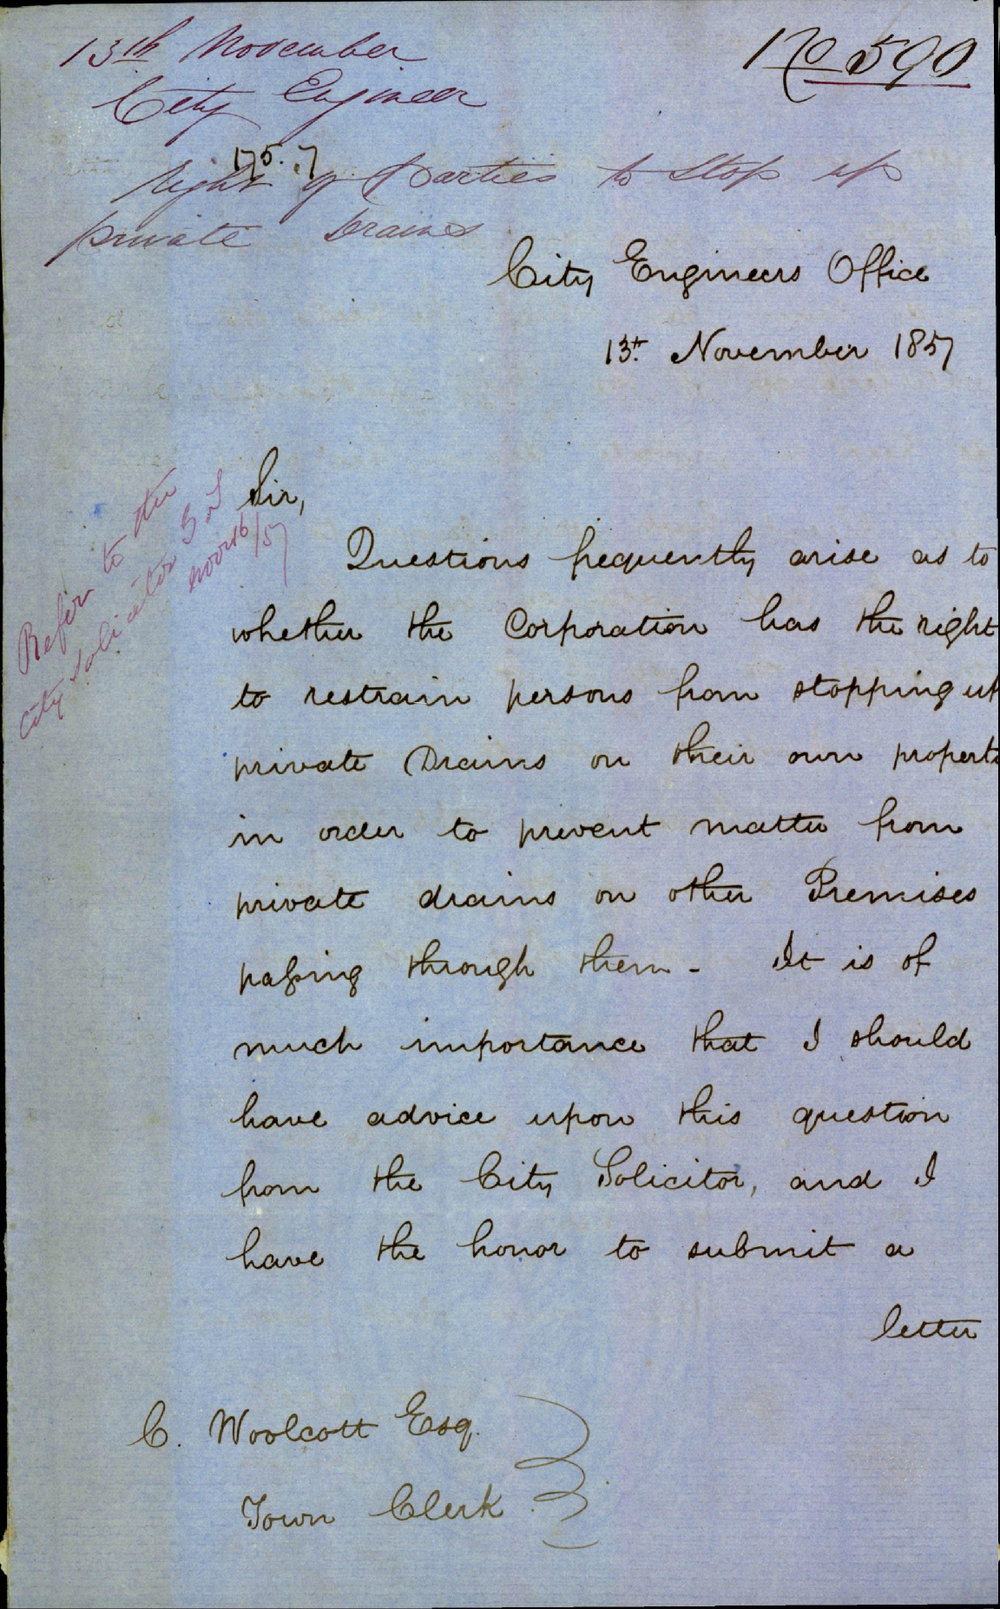 13th November
No 590
City Engineer
175.7
right of parties to stop up
private Drains
City Engineers Office
13th November 1857
Sir,
Refer to the
City Solicitor
Novr 16/57
Questions frequently arise as to
whether the Corporation has the right
to restrain persons from stopping up
private Drains on their own propert
in order to prevent matter from
private drains on other Premises
passing through them - It is of
much importance that I should
have advice upon this question
from the City Solicitor, and I
have the honor to submit a
letter
C. Woolcott Esq.
Town Clerk